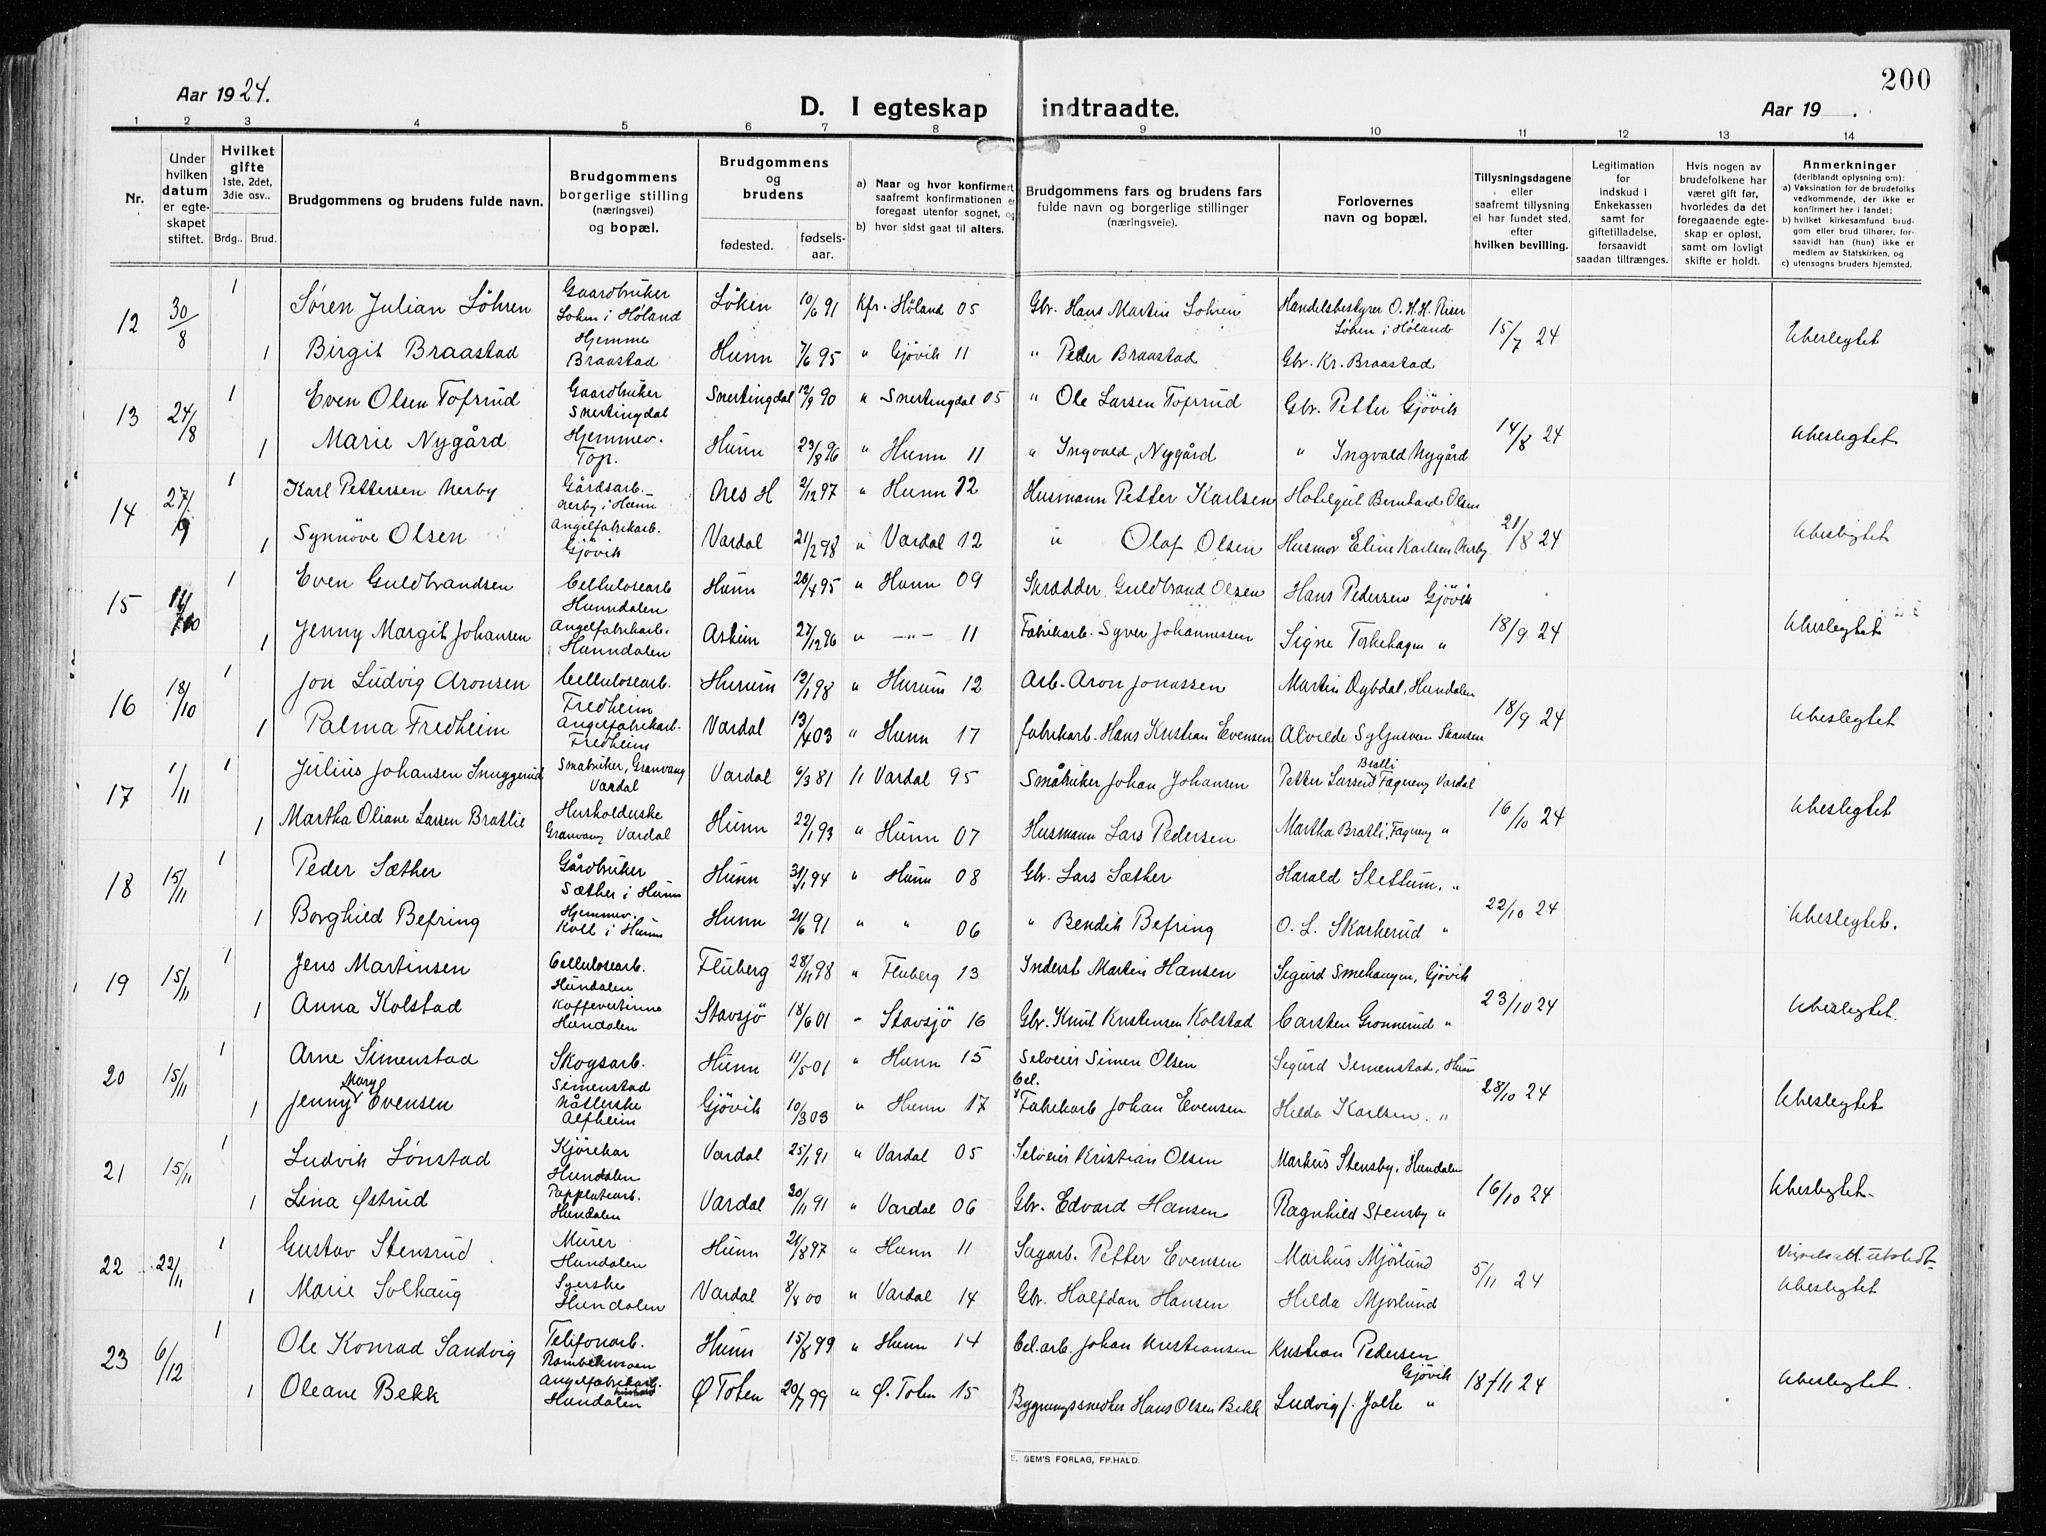 200
Aar 1924.
D. I egteskap indtraadte.
Aar 19 .
1 2 3 4 5 6 7 8 9 10 11 12 13 14
Nr.
Under hvilken datum er egteskapet stiftet.
Hvilket gifte 1ste, 2det, 3die osv..
Brdg.. Brud.
Brudgommens og brudens fulde navn.
Brudgommens borgerlige stilling (næringsvei) og bopæl.
Brudgommens og brudens
fødested. fødselsaar.
a) Naar og hvor konfirmert, saafremt konfirmationen er foregaat utenfor sognet, og
b) hvor sidst gaat til alters.
Brudgommens fars og brudens fars fulde navn og borgerlige stillinger (næringsveie).
Forlovernes navn og bopæl.
Tillysningsdagene eller saafremt tillysning ei har fundet sted, efter hvilken bevilling.
Legitimation for indskud i Enkekassen samt for giftetilladelse, forsaavidt saadan tiltrænges.
Hvis nogen av brudefolkene har været gift før, hvorledes da det foregaaende egteskap er opløst, samt om lovligt skifte er holdt.
Anmerkninger (deriblandt oplysning om):
a) Vaksination for de brudefolks vedkommende, der ikke er konfirmert her i landet;
b) hvilket kirkesamfund brudgom eller brud tilhører, forsaavidt han (hun) ikke er medlem av Statskirken, og
c) utensogns bruders hjemsted.
12 30/8 1 Søren Julian Löhren Gaardbruker Løken i Høland Løken 10/6 91 Kfr. Høland 05 Gbr. Hans Martin Lohren Handelsbestyrer O. H. H. Riser Løken i Høland 15/7 24 Ubeslegtet
1 Birgit Braastad Hjemme Braastad Hunn 7/6 95 " Gjövik 11 " Peder Braastad Gbr. Kr. Braastad
13 24/8 1 Even Olsen Tofsrud Gaardbruker Snertingdal Snertingdal 12/9 90 " Snertingdal 05 " Ole Larsen Tofsrud Gbr. Petter Gjövik 14/8 24 Ubeslegtet
1 Marie Nygård Hjemmev. Top. Hunn 23/8 96 " Hunn 11 " Ingvald Nygård " Ingvald Nygård
14 27/9 1 Karl Pettersen Nerby Gårdsarb. Nerby i Hunn Nes H 2/12 97 " Hunn 12 Husmann Petter Karlsen Bernhard Olsen 21/8 24 Ubeslegtet
1 Synnöve Olsen Angelfabrikarb. Gjövik Vardal 21/2 98 " Vardal 12 " Olaf Olsen Husmor Eline Karlsen Nerby
15 11/10 1 Even Guldbrandsen Cellulosearb Hunndalen Hunn 20/4 95 " Hunn 09 Skrædder Guldbrand Olsen Hans Pedersen Gjövik 18/9 24 Ubeslegtet
1 Jenny Margit Johansen Angelfabrikarb. Hunndalen Askim 27/12 96 " —"— 11 Fabrikarb. Syver Johannessen Signe Torkehagen "
16 18/10 1 Jon Ludvig Aronsen Cellulosearb. Fredheim Hurum 12/1 98 " Hurum 12 Arb. Aron Jonassen Martin Dybdal, Hundalen 18/9 24 Ubeslegtet
1 Palma Fredheim Angelfabrikarb. Fredheim Vardal 13/4 03 " Hunn 17 fabrikarb. Hans Kristian Evensen Alvilde Syljusveen Skansen
17 1/11 1 Julius Johansen Snuggerud Småbruker, Granvang Vardal Vardal 6/3 81 " Vardal 95 Småbruker Johan Johansen Petter Larsen Bratli Fagereng Vardal 16/10 24 Ubeslegtet
1 Martha Oliane Larsen Bratlie Husholderske Granvang Vardal Hunn 22/1 93 " Hunn 07 Husmann Lars Pedersen Martha Bratli, Fagereng "
18 15/11 1 Peder Sæther Gårdbruker Sæther i Hunn Hunn 31/1 94 " Hunn 08 Gbr. Lars Sæther Harald Slettum. " 22/10 24 Ubeslegtet.
1 Borghild Befring Hjemmev. Koll i Hunn Hunn 21/6 91 " " 06 " Bendik Befring O. L. Skarkerud "
19 15/11 1 Jens Martinsen Cellulosearb. Hundalen Fluberg 28/11 98 " Fluberg 13 Inderst Martin Hansen Sigurd Smehaugen, Gjövik 23/10 24 Ubeslegtet.
1 Anna Kolstad Kaffevertinne Hundalen Stavsjö 18/6 01 " Stavsjö 16 Gbr. Knut Kristensen Kolstad Carsten Grönnerud "
20 15/11 1 Arne Simenstad Skogsarb. Simenstad Hunn 11/5 01 " Hunn 15 Selveier Simen Olsen Sigurd Simenstad, Hunn 28/10 24 Ubeslegtet
1 Jenny Mary Evensen Alfheim Gjövik 10/3 03 " Hunn 17 Cel. Fabrikarb Johan Evensen Hilda Karlsen. "
21 15/11 1 Ludvik Lönstad Kjörekar Hundalen Vardal 25/1 91 " Vardal 05 Selveier Kristian Olsen Markus Stensby, Hundalen 16/10 24 Ubeslegtet.
1 Lina Østrud Hundalen Vardal 30/11 91 " Vardal 06 Gbr. Edvard Hansen Ragnhild Stensby "
22 22/11 1 Gustav Stensrud Murer Hundalen Hunn 21/8 97 " Hunn 11 Sagarb. Petter Evensen Markus Mjörlund 5/11 24 Vigselsatt. utstedt
1 Marie Solhaug Syerske Hundalen Vardal 8/8 00 " Vardal 14 Gbr. Halfdan Hansen Hilda Mjörlund Ubeslegtet
23 6/12 1 Ole Konrad Sandvig Telefonarb. Hunn 15/8 99 " Hunn 14 Cel. arb. Johan Kristiansen Kristian Pedersen Gjövik 18/11 24 Ubeslegtet.
1 Oleane Bekk Angelfabrikarb. Hundalen Ø Toten 20/7 99 " Ø. Toten 15 Bygningssnedker Hans Olsen Bekk Ludvig J. Jolte "
GEM'S FORLAG, FR.HALD